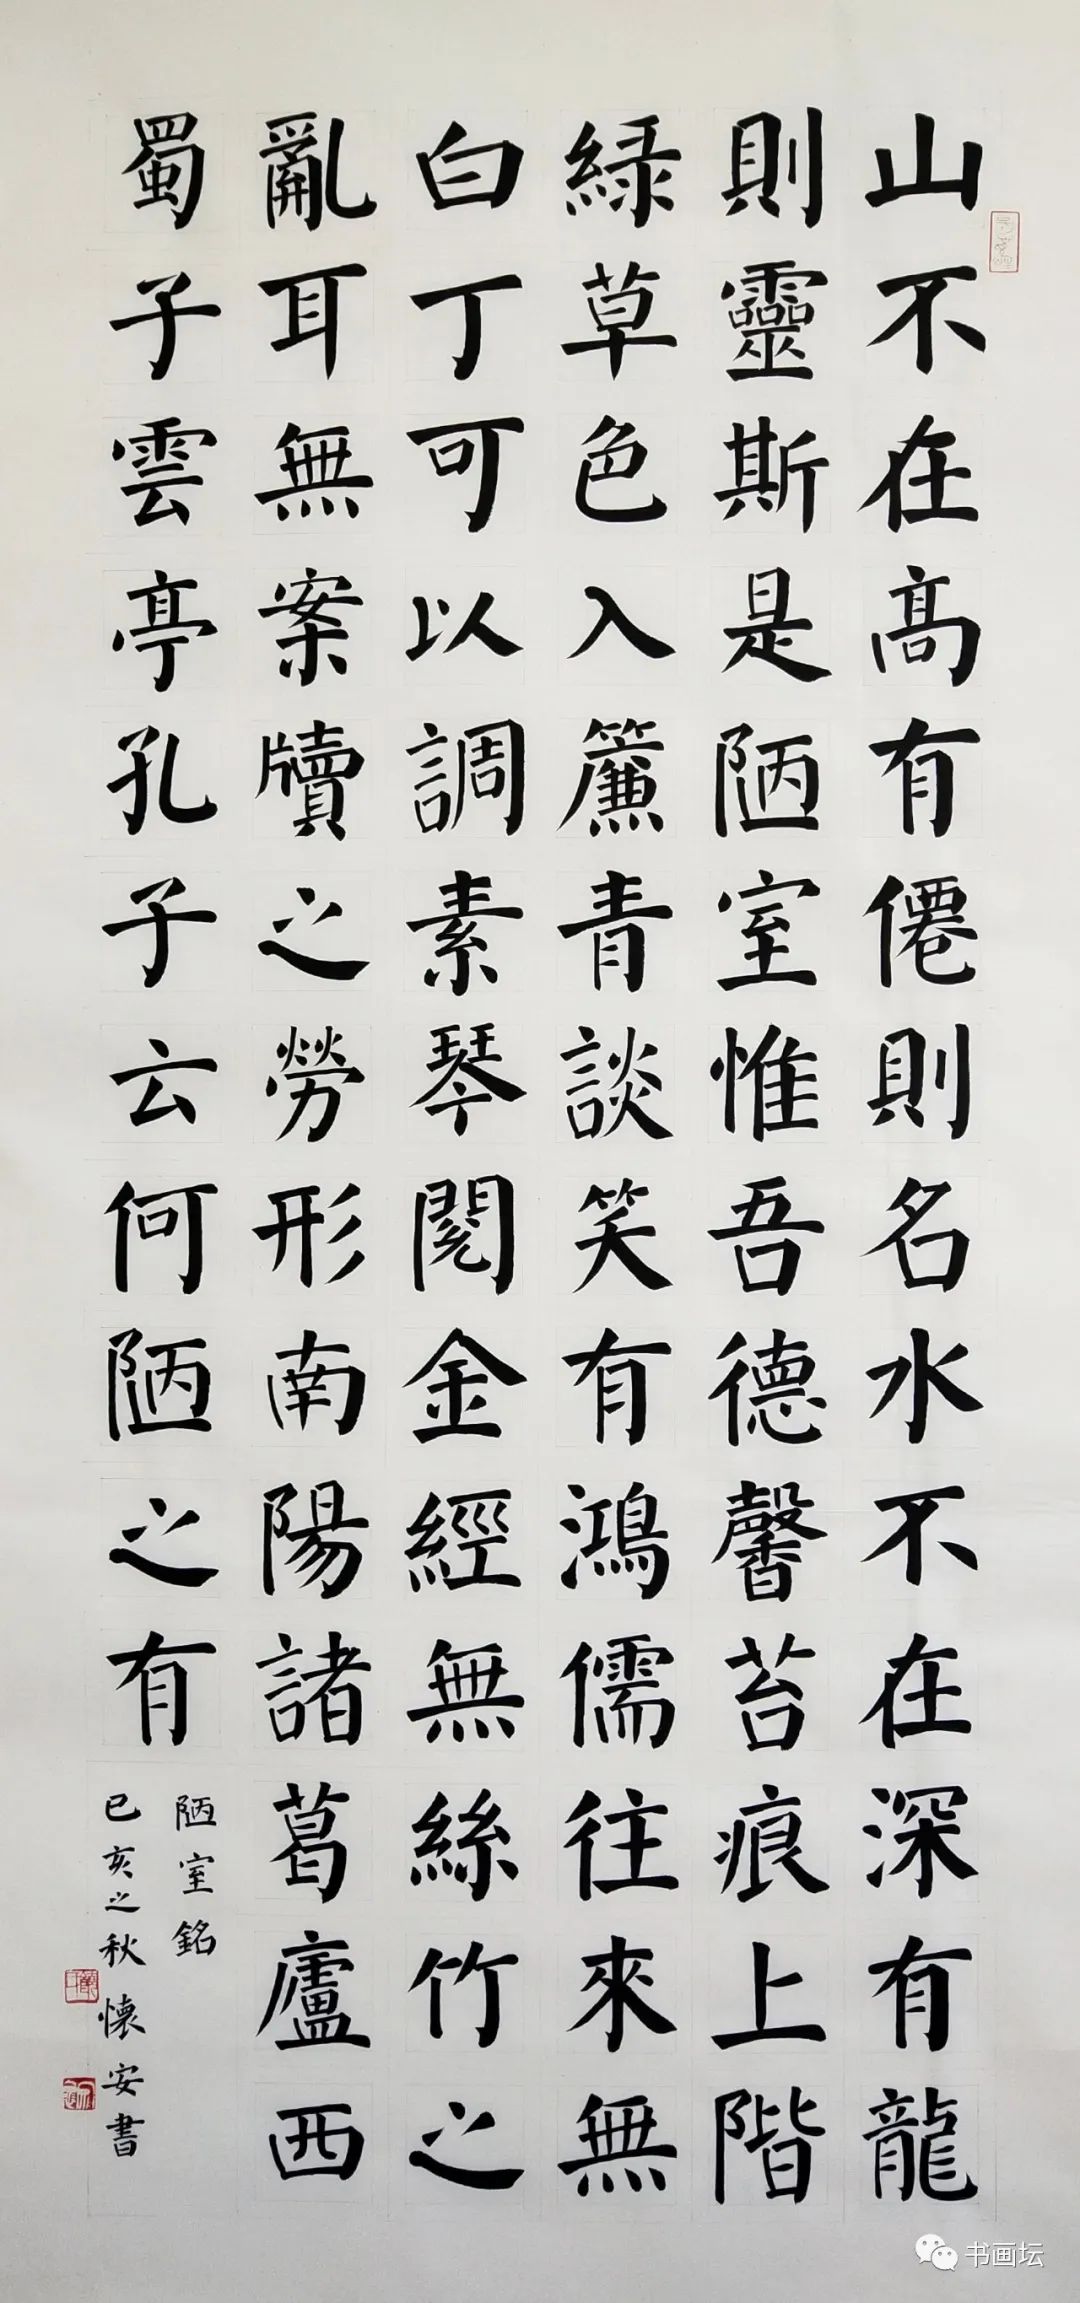 山不在高有僊則名水不在深有龍
則靈斯是陋室惟吾德馨苔痕上階
綠草色入簾青談笑有鴻儒往來無
白丁可以調素琴閱金經無絲竹之
亂耳無案牘之勞形南陽諸葛廬西
蜀子雲亭孔子云何陋之有
陋室銘
己亥之秋懷安書
书画坛